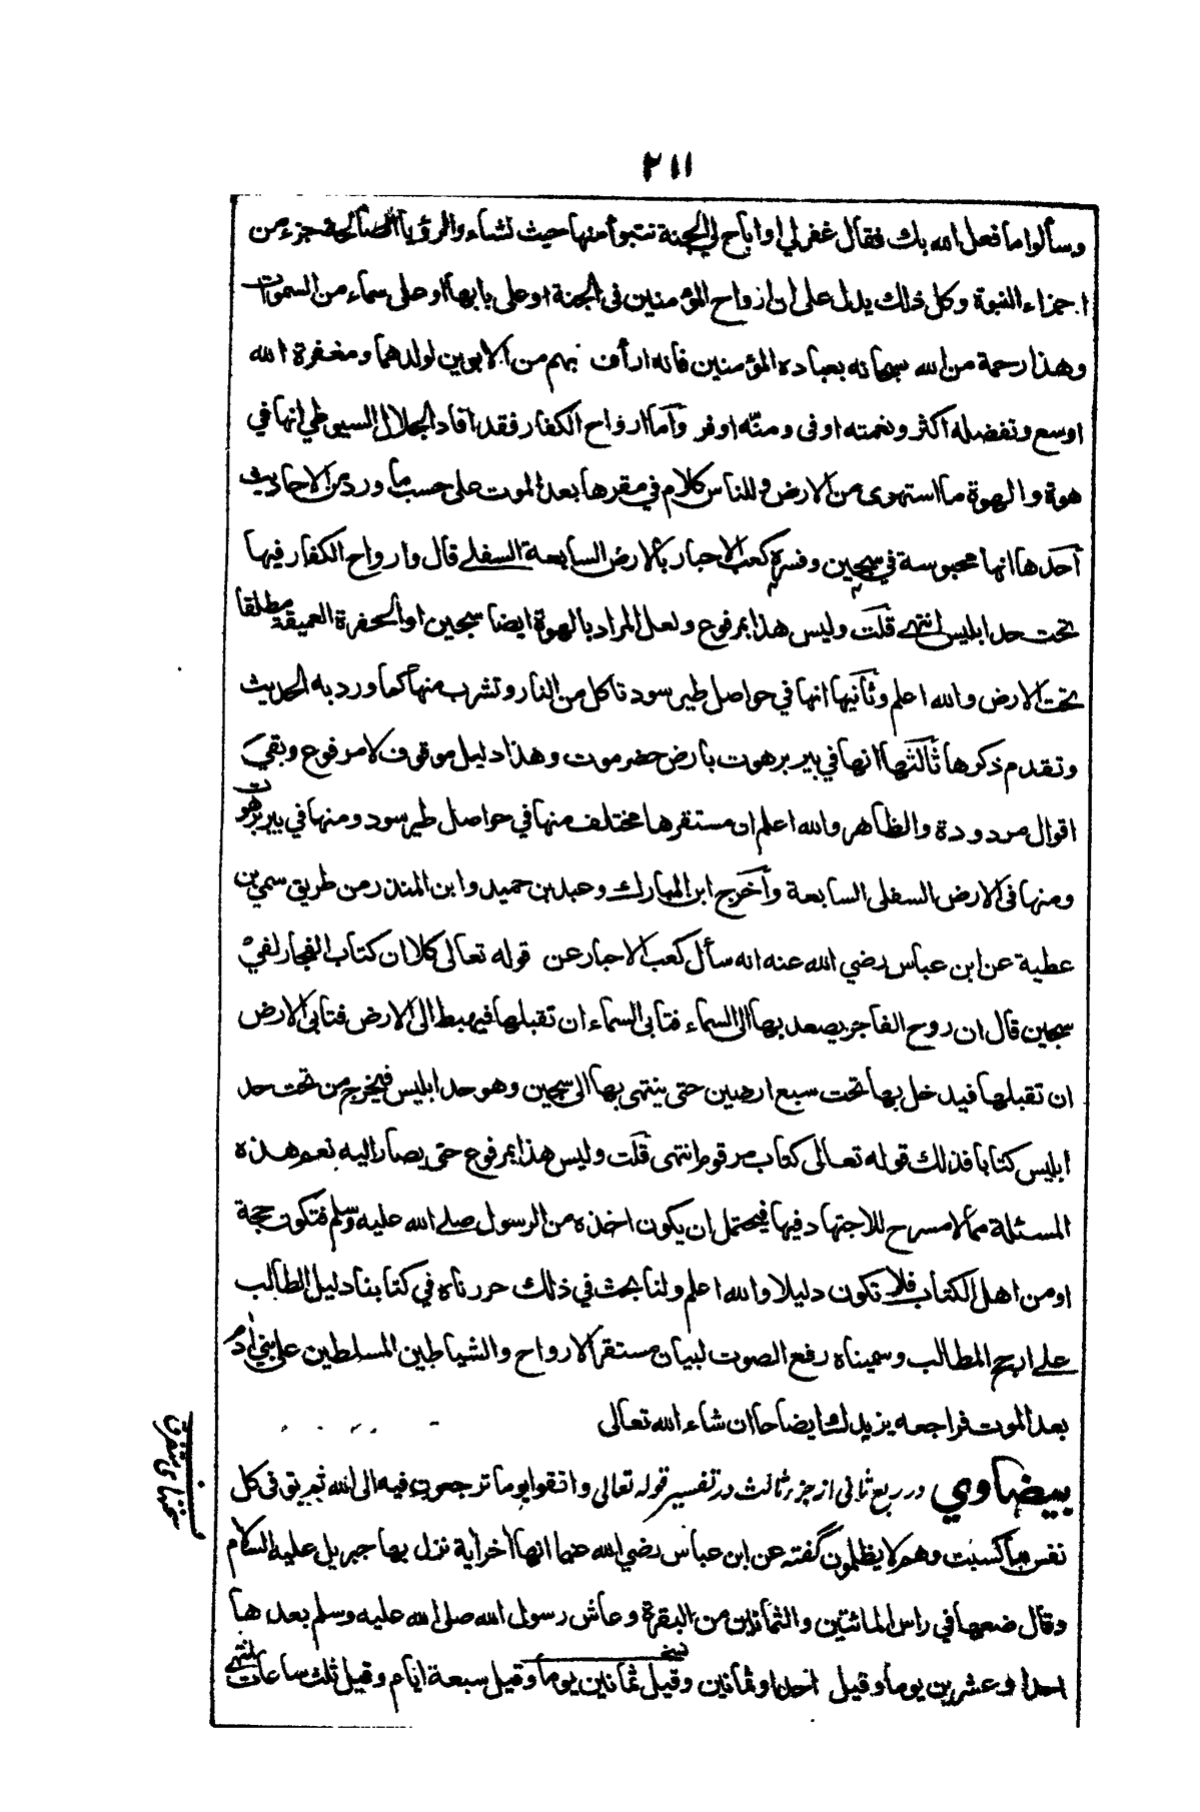 ٢١١
وسألوا ما فعل الله بك فقال غفر لي او اباح لي الجنة نتبوأ منها حيث نشاء والرؤيا الصالحة جزء من
اجزاء النبوة وكل ذلك يدل على ان ارواح المؤمنين في الجنة او على بابها او على سماء من السموات
وهذا رحمة من الله سبحانه بعباده المؤمنين فانه ارأف بهم من الابوين لولدهما ومغفرة الله
اوسع وتفضله اكثر ونعمته اوفى ومنّه اوفر وأما ارواح الكفار فقد افاد الجلال السيوطي انها في
هوة والهوة ما استهوى من الارض وللناس كلام في مقرها بعد الموت على حسب ما ورد من الاحاديث
أحدها انها محبوسة في سجين وفسره كعب الاحبار بالارض السابعة السفلى قال وارواح الكفار فيها
تحت حد ابليس انتهى قلت وليس هذا بمرفوع ولعل المراد بالهوة ايضا سجين او الحفرة العميقة مطلقا
تحت الارض والله اعلم وثانيها انها في حواصل طير سود تاكل من النار وتشرب منها كما ورد به الحديث
وتقدم ذكرها ثالثها انها في بير برهوت بارض حضرموت وهذا دليل موقوف لا مرفوع وبقي
اقوال مردودة والظاهر والله اعلم ان مستقرها مختلف منها في حواصل طير سود ومنها في بير برهوت
ومنها في الارض السفلى السابعة وأخرج ابن المبارك وعبد بن حميد وابن المنذر من طريق سمي بن
عطية عن ابن عباس رضي الله عنه انه سأل كعب الاحبار عن قوله تعالى كلا ان كتاب الفجار لفي
سجين قال ان روح الفاجر يصعد بها الى السماء فتابى السماء ان تقبلها فيهبط الى الارض فتابى الارض
ان تقبلها فيدخل بها تحت سبع ارضين حتى ينتهى بها الى سجين وهو حد ابليس فيخرج من تحت حد
ابليس كتابا فذلك قوله تعالى كتاب مرقوم انتهى قلت وليس هذا بمرفوع حتى يصار اليه نعم هذه
المسئلة مما لا مسرح للاجتهاد فيها فيحتمل ان يكون اخذه من الرسول صلى الله عليه وسلم فتكون حجة
او من اهل الكتاب فلا تكون دليلا والله اعلم ولنا بحث في ذلك حررناه في كتابنا دليل الطالب
على ارجح المطالب وسميناه رفع الصوت لبيان مستقر الارواح والشياطين المسلطين على بني أدم
بعد الموت فراجعه يزيدك ايضاحا ان شاء الله تعالى
بيضاوي در ربع ثاني از جزء ثالث در تفسير قوله تعالى واتقوا يوما ترجعون فيه الى الله ثم توفى كل
نفس ما كسبت وهم لا يظلمون گفته عن ابن عباس رضي الله عنهما انها أخر أية نزل بها جبريل عليه السلام
وقال ضعها في راس المائتين والثمانين من البقرة وعاش رسول الله صلى الله عليه وسلم بعدها
احدا وعشرين يوما وقيل احدا وثمانين وقيل ثمانين يوما وقيل سبعة ايام وقيل ثلث ساعات انتهى
نسخه